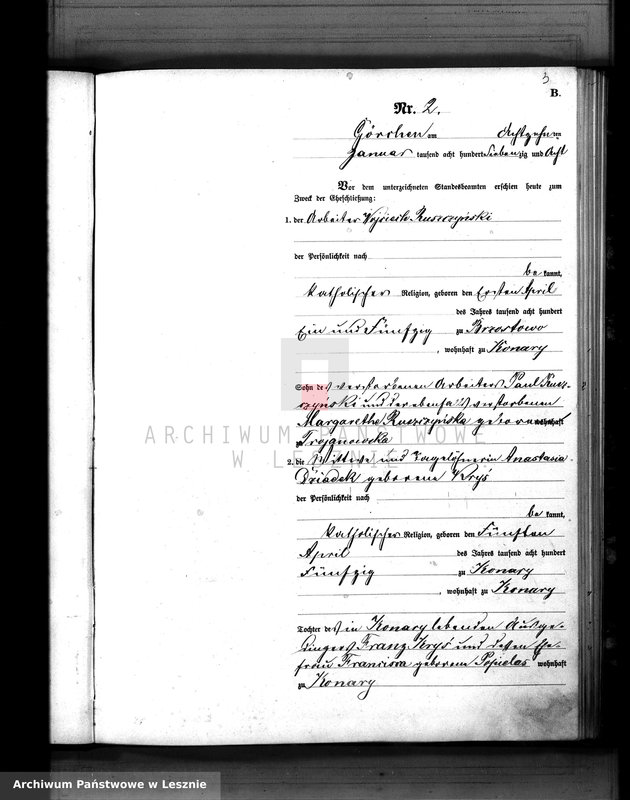 3
B.
Nr. 2.
Görchen am Achtzehnten
Januar tausend acht hundert siebenzig und Acht
Vor dem unterzeichneten Standesbeamten erschien heute zum
Zweck der Eheschließung:
1. der Arbeiter Wojciech Ruszczyński
der Persönlichkeit nach
be kannt,
katholischer Religion, geboren den Ersten April
des Jahres tausend acht hundert
Ein und Fünfzig zu Brzostowo
, wohnhaft zu Konary
Sohn des verstorbenen Arbeiters Paul Rusz-
czyński und der ebenfalls verstorbenen
Margaretha Ruszczyńska geborenen wohnhaft
zu Trojanowska
2. die Wittwe und Tagelöhnerin Anastasia
Dziadek geborene Kryś
der Persönlichkeit nach
be kannt,
katholischer Religion, geboren den Fünften
April des Jahres tausend acht hundert
Fünfzig zu Konary
, wohnhaft zu Konary
Tochter des in Konary lebenden Ausge-
dingers Franz Kryś und dessen Ehe-
frau Francisca geborene wohnhaft
zu Konary
ARCHIWUM PAŃSTWOWE
W LESZNIE
Archiwum Państwowe w Lesznie